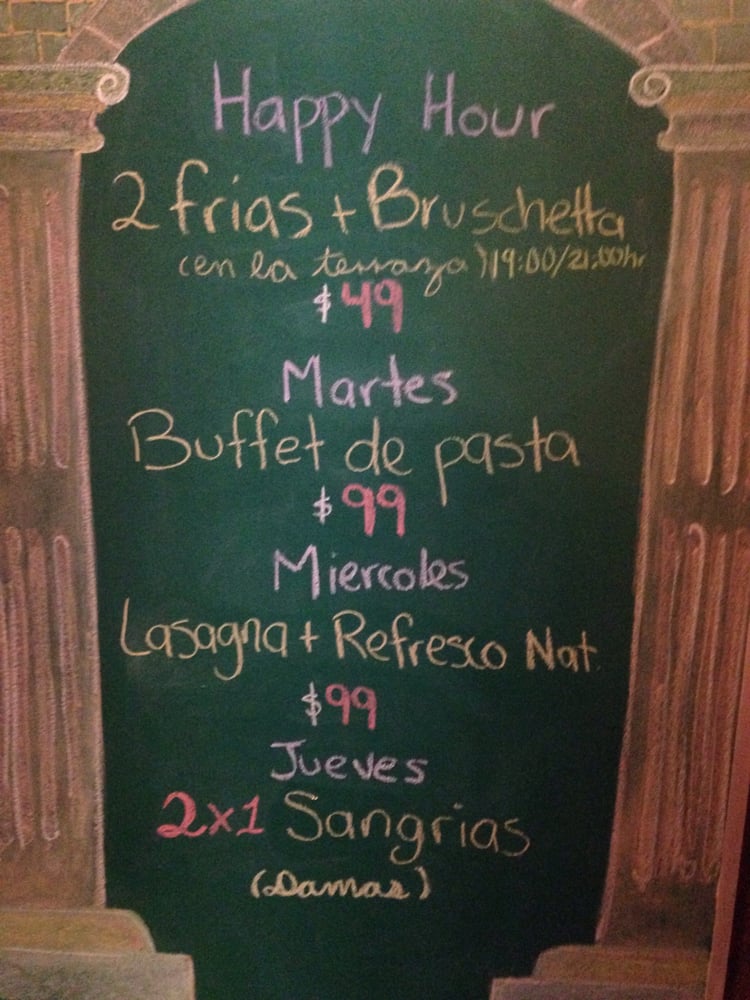 Happy Hour
2 frias + Bruschetta
(en la terraza) 19:00/21:00hr
$49
Martes
Buffet de pasta
$99
Miercoles
Lasagna + Refresco Nat.
$99
Jueves
2x1 Sangrias
(Damas)